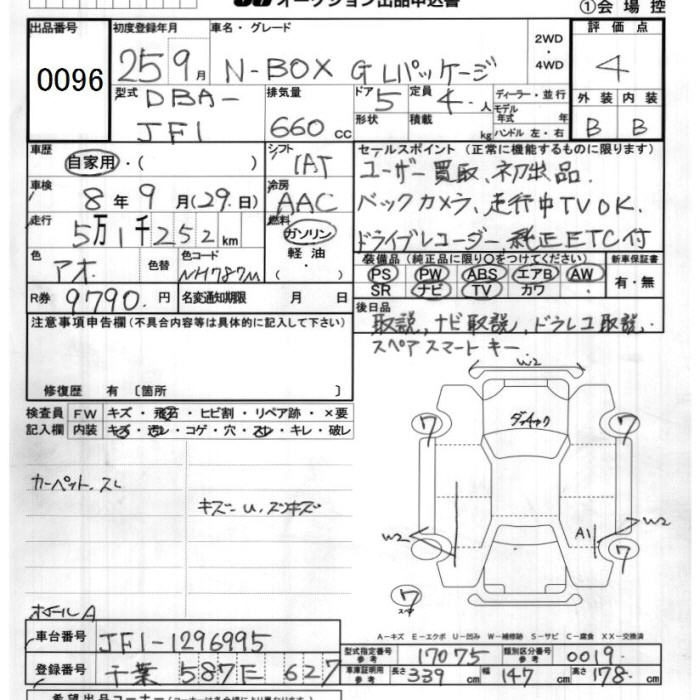 オークション出品申込書
①会場控
出品番号 0096
初度登録年月 25 9月
車名・グレード N-BOX G Lパッケージ
2WD・4WD
評価点 4
型式 DBA-JF1
排気量 660 cc
ドア 5 定員 4.人
形状 積載 kg
ディーラー・並行
モデル年式 年式
ハンドル 左・右
外装 内装
B B
車歴 自家用・( )
シフト IAT
セールスポイント (正常に機能するものに限ります)
ユーザー買取、初出品.
バックカメラ、走行中TVOK.
ドライブレコーダー、純正ETC付
車検 8年9月(29.日)
冷房 AAC
走行 5万1千252km
燃料 ガソリン・軽油・( )
色 アオ 色替 色コード NH787M
装備品 (純正品に限り○をつけてください) 新車保証書
PS PW ABS エアB AW
SR ナビ TV カワ
有・無
R券 9790.円
名変通知期限 月 日
後日品
取説、ナビ取説、ドラレコ取説.
スペアスマートキー
注意事項申告欄(不具合内容等は具体的に記入して下さい)
修復歴 有 〔箇所 〕
検査員記入欄
FW キズ・飛石・ヒビ割・リペア跡・×要
内装 キズ・汚レ・コゲ・穴・スレ・キレ・破レ
カーペット.スレ
キズ- U.
W2
7
7
W2
A1
W2
7
7
A-キズ E-エクボ U-凹み W-補修跡 S-サビ C-腐食 XX-交換済
車台番号 JF1-1296995
登録番号 千葉 587 627
型式指定番号 参考 17075 類別区分番号 参考 0019
車庫証明用 参考 長さ 339 cm 幅 147 cm 高さ 178 cm
希望出品コーナー